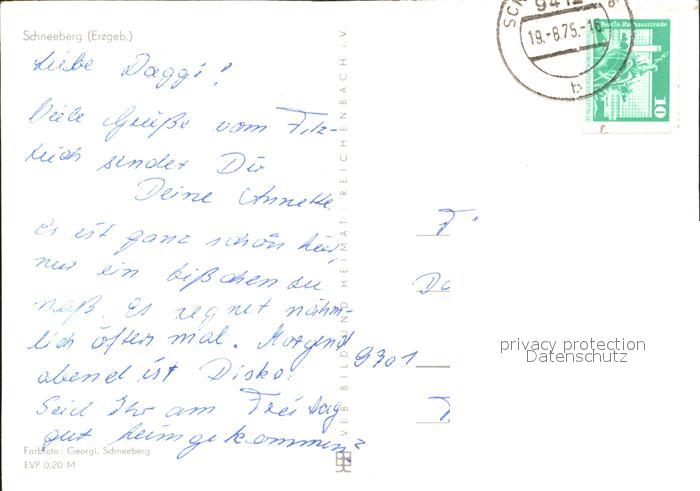 Schneeberg (Erzgeb.)
Liebe Daggi!
Viele Grüße vom Filz-
teich sendet Dir
Deine Annette.
Es ist ganz schön hier,
nur ein bißchen zu
naß. Es regnet nähm-
lich öfter mal. Morgend
abend ist Disko.
Seid Ihr am Freitag
gut heimgekommen?
Farbfoto: Georgi, Schneeberg
EVP 0,20 M
VEB BILD UND HEIMAT REICHENBACH i.V.
19.-8.75.-18
b
Berlin, Rathausstraße
10
F
Da
9301
privacy protection
Datenschutz